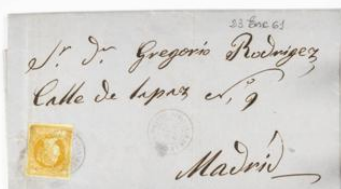 23 Ene 61
Sr. Dn. Gregorio Rodrigez
Calle de lapaz nº, 9
Madrid